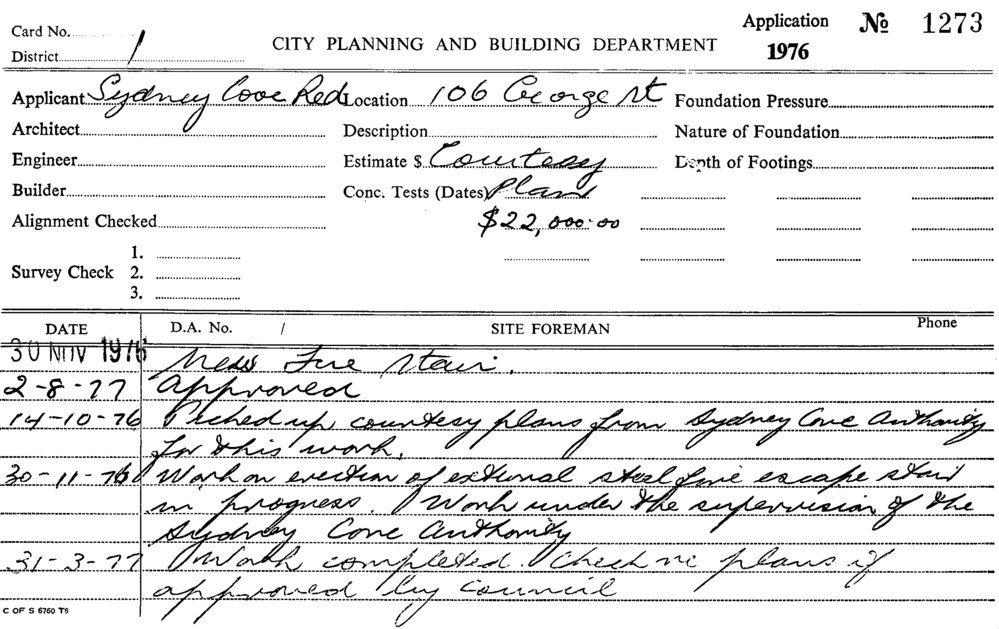 Card No.
Application № 1273
District /
CITY PLANNING AND BUILDING DEPARTMENT
1976
Applicant Sydney Cove Red Location 106 George St Foundation Pressure
Architect Description Nature of Foundation
Engineer Estimate $ Courtesy Depth of Footings
Builder Conc. Tests (Dates) Plans
Alignment Checked $22,000.00
1.
Survey Check 2.
3.
DATE D.A. No. / SITE FOREMAN Phone
30 NOV 1976 New Fire Stair.
2-8-77 Approved
14-10-76 Picked up courtesy plans from Sydney Cove Authority
for this work.
30-11-76 Work on erection of external steel fire escape stair
in progress. Work under the supervision of the
Sydney Cove Authority
31-3-77 Work completed. Check re plans if
approved by council
C OF S 6760 T6